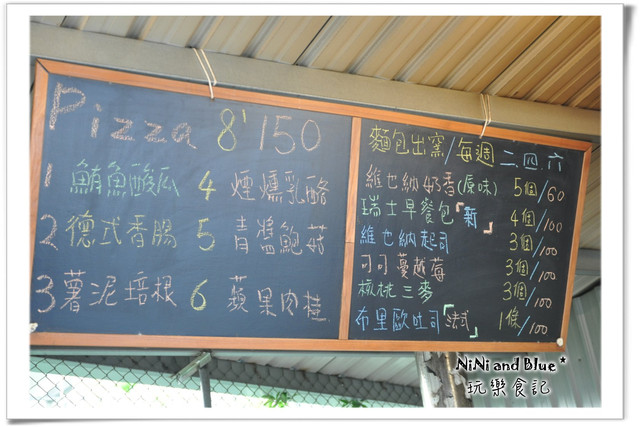 Pizza 8' 150
1 鮪魚酸瓜 4 煙燻乳酪
2 德式香腸 5 青醬鮑菇
3 薯泥培根 6 蘋果肉桂
麵包出窯/每週 二.四.六
維也納奶香(原味) 5個/60
瑞士早餐包「新」 4個/100
維也納起司 3個/100
可可蔓越莓 3個/100
核桃三麥 3個/100
布里歐吐司「法式」 1條/100
NiNi and Blue*
玩樂食記